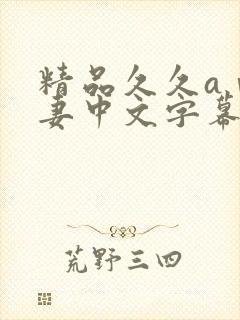 精品久久a
妻中文字幕
荒野三四